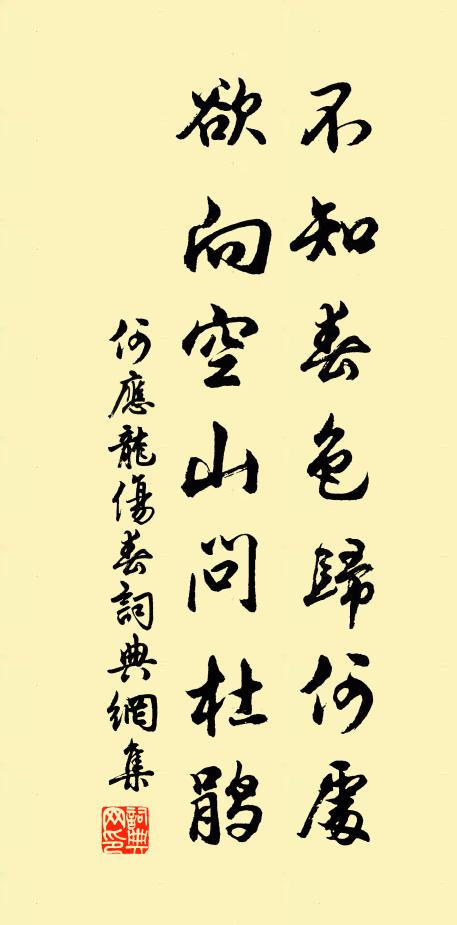 不知春色歸何處
欲向空山問杜鵑
何應龍傷春詞典網集
詞典网印